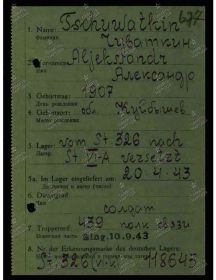 677
1. Name: Tschuwatkin
Фамилия Чуваткин
2. Vorname: Aljeksandr
Имя Александр
3. Geburtstag: 1907
День рождения
4. Geburtsort: обл. Куйбышев
Место рождения
5. Lager: vom St 326 nach
Лагерь St VI-A versetzt
5a. Im Lager eingeliefert am: 20.4.43
6. Dienstgrad
Чин солдат
7. Truppenteil: 439 полк связи
Войсковая часть 10.9.43
8. Nr. der Erkennungsmarke des deutschen Lagers:
St 326 118643